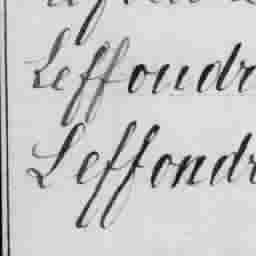 Leffoudr
Leffondr